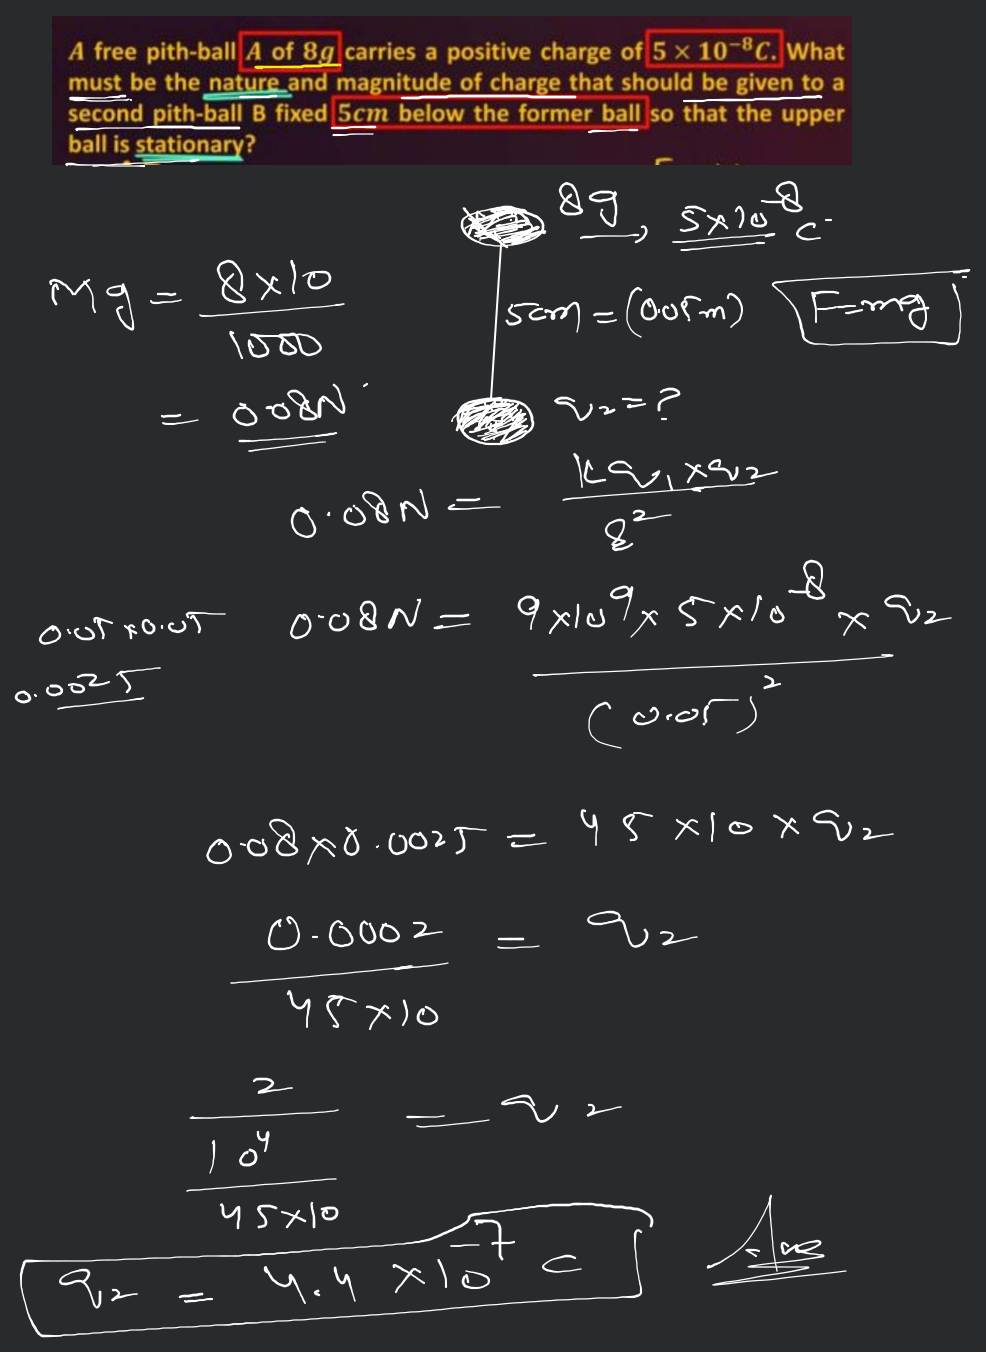 A free pith-ball A of 8g carries a positive charge of 5 × 10⁻⁸C. What
must be the nature and magnitude of charge that should be given to a
second pith-ball B fixed 5cm below the former ball so that the upper
ball is stationary?
8g, 5×10⁻⁸ C
Mg = 8×10
1000
5cm = (0.05m) F=mg
= 0.08N
q₂ = ?
0.08N = kq₁×q₂
8²
0.05×0.05 0.08N = 9×10⁹× 5×10⁻⁸ × q₂
0.0025
(0.05)²
0.08×0.0025 = 45×10×q₂
0.0002 = q₂
45×10
2
10⁴ = q₂
45×10
q₂ = 4.4 ×10⁻⁷ C Ans